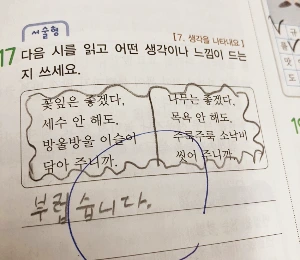 서술형
[7. 생각을 나타내요]
17 다음 시를 읽고 어떤 생각이나 느낌이 드는
지 쓰세요.
꽃잎은 좋겠다,
세수 안 해도.
방울방울 이슬이
닦아 주니까.
나무는 좋겠다.
목욕 안 해도.
주룩주룩 소낙비
씻어 주니까.
부럽습니다.